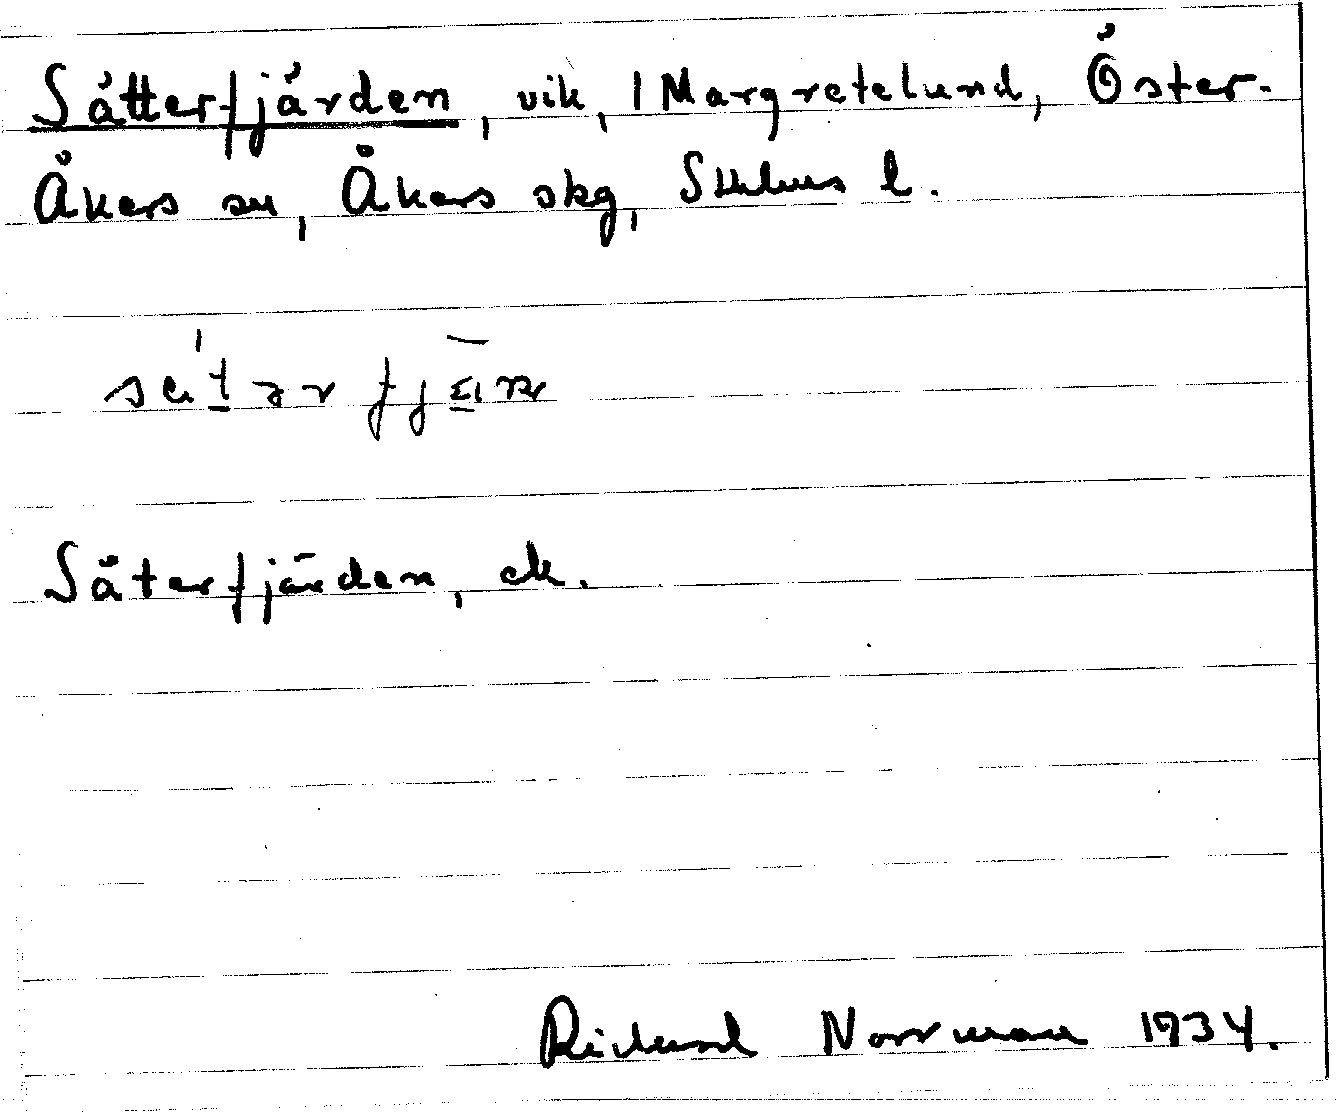 Sätterfjärden, vik, 1 Margretelund, Öster-
Åkers sn, Åkers skg, Sthlms l.
Säterfjärden, ek.
Richard Norrman 1934.